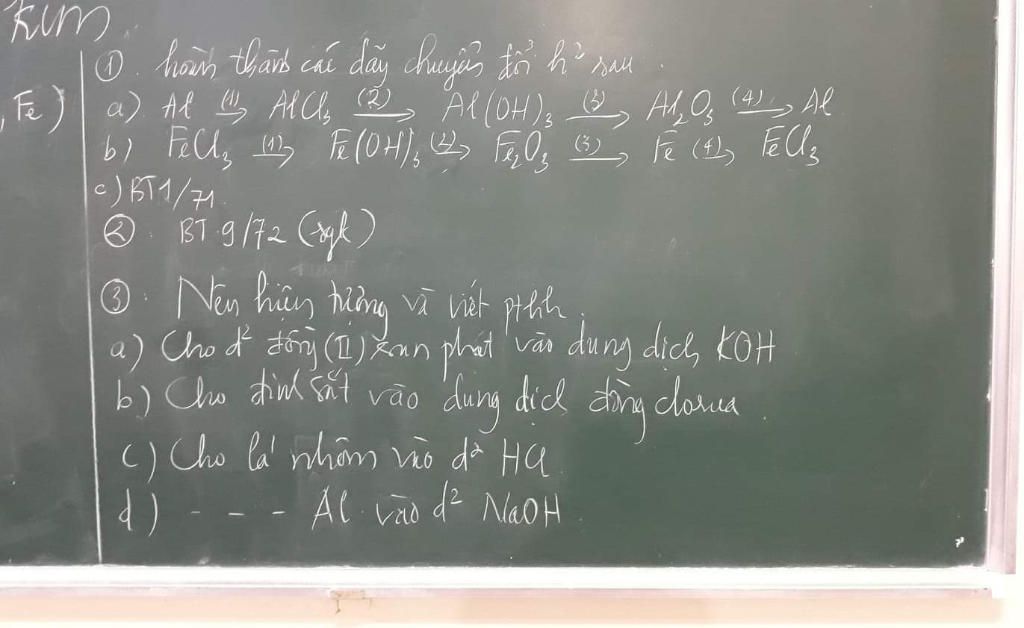 kim
, Fe)
① hoàn thành các dãy chuyển đổi h² sau.
a) Al (1)→ AlCl₃ (2)→ Al(OH)₃ (3)→ Al₂O₃ (4)→ Al
b) FeCl₃ (1)→ Fe(OH)₃ (2)→ Fe₂O₃ (3)→ Fe (4)→ FeCl₃
c) BT1/71.
② BT 9/72 (sgk)
③. Nêu hiện tượng và viết pthh.
a) Cho d² đồng (II) sun phat vào dung dịch KOH
b) Cho đinh sắt vào dung dịch đồng clorua.
c) Cho lá nhôm vào d² HCl
d) - - - Al vào d² NaOH.